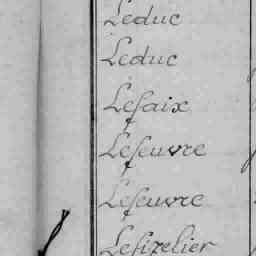 Leduc
Leduc
Lefaix
Lefeuvre
Lefeuvre
Lefizelier